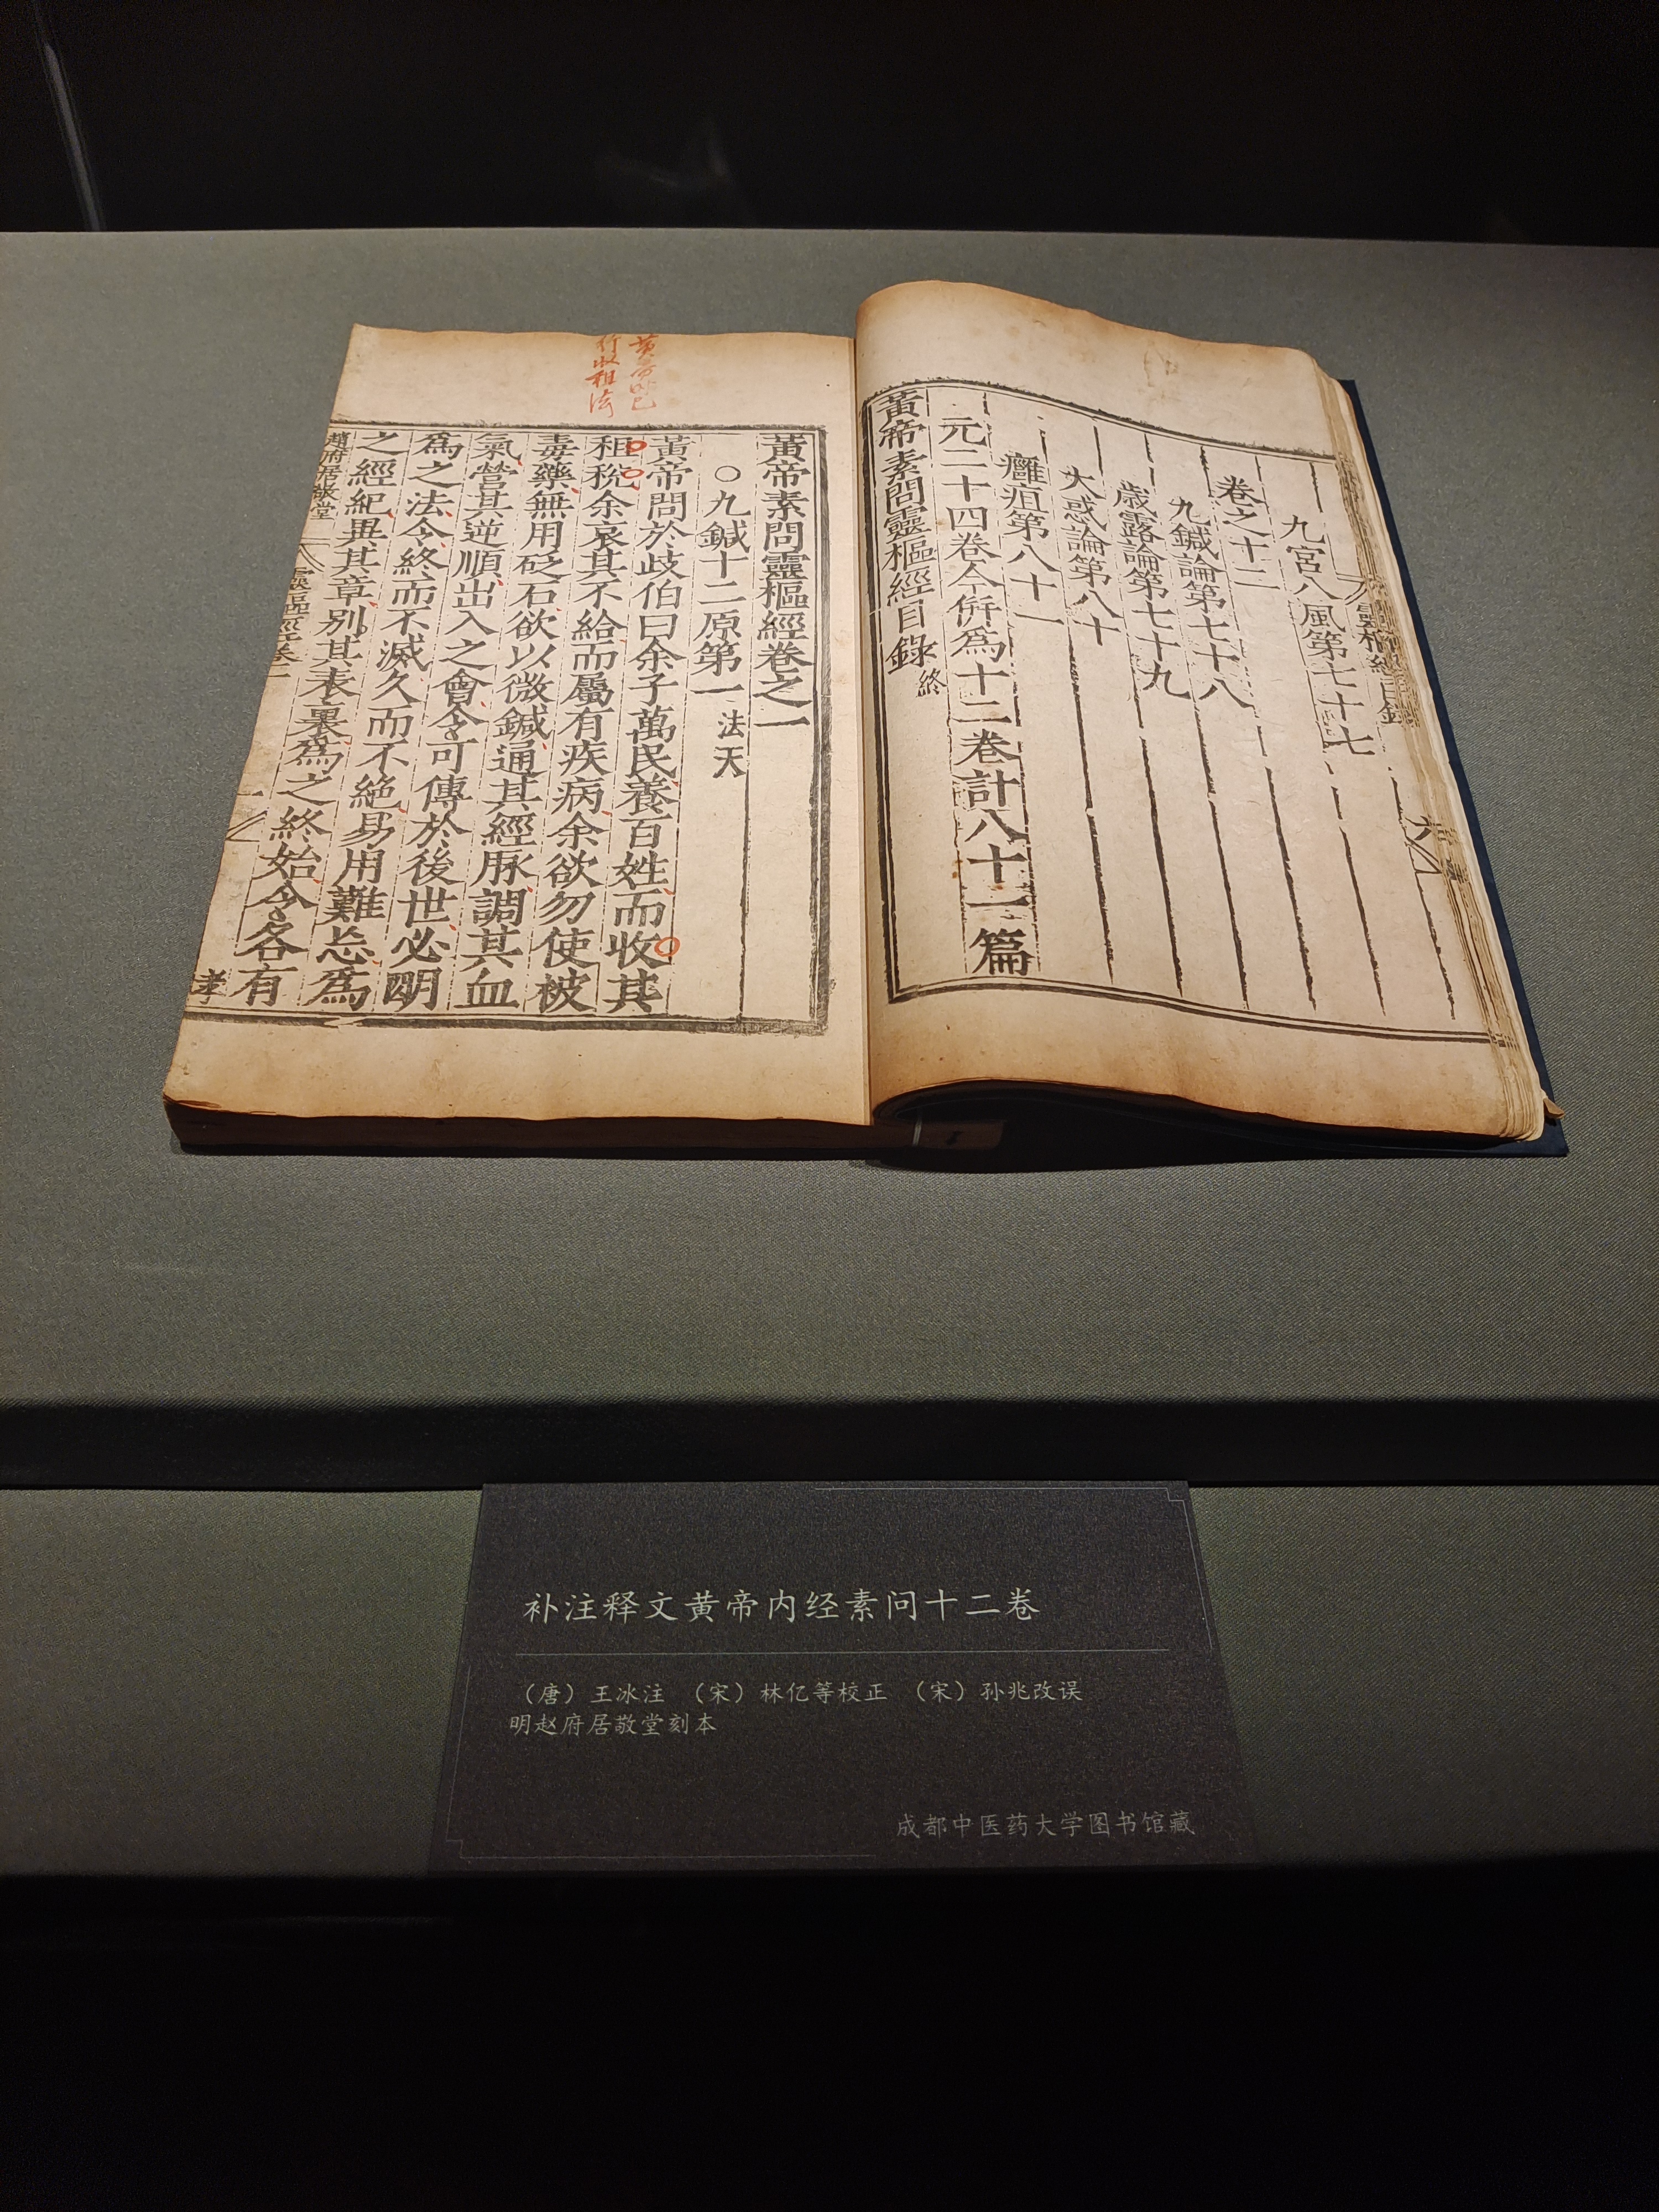 九宮八風第七十七
卷之十二
九鍼論第七十八
歲露論第七十九
大惑論第八十
癰疽第八十一
元二十四卷今併為十二卷計八十一篇
黃帝素問靈樞經目錄終
黃帝素問靈樞經卷之一
○九鍼十二原第一法天
黃帝問於歧伯曰余子萬民養百姓而收其
租稅余哀其不給而屬有疾病余欲勿使被
毒藥無用砭石欲以微鍼通其經脉調其血
氣營其逆順出入之會令可傳於後世必明
為之法令終而不滅久而不絕易用難忘為
之經紀異其章別其表裏為之終始令各有
趙府居敬堂
靈樞經卷一
补注释文黄帝内经素问十二卷
（唐）王冰注 （宋）林亿等校正 （宋）孙兆改误
明赵府居敬堂刻本
成都中医药大学图书馆藏